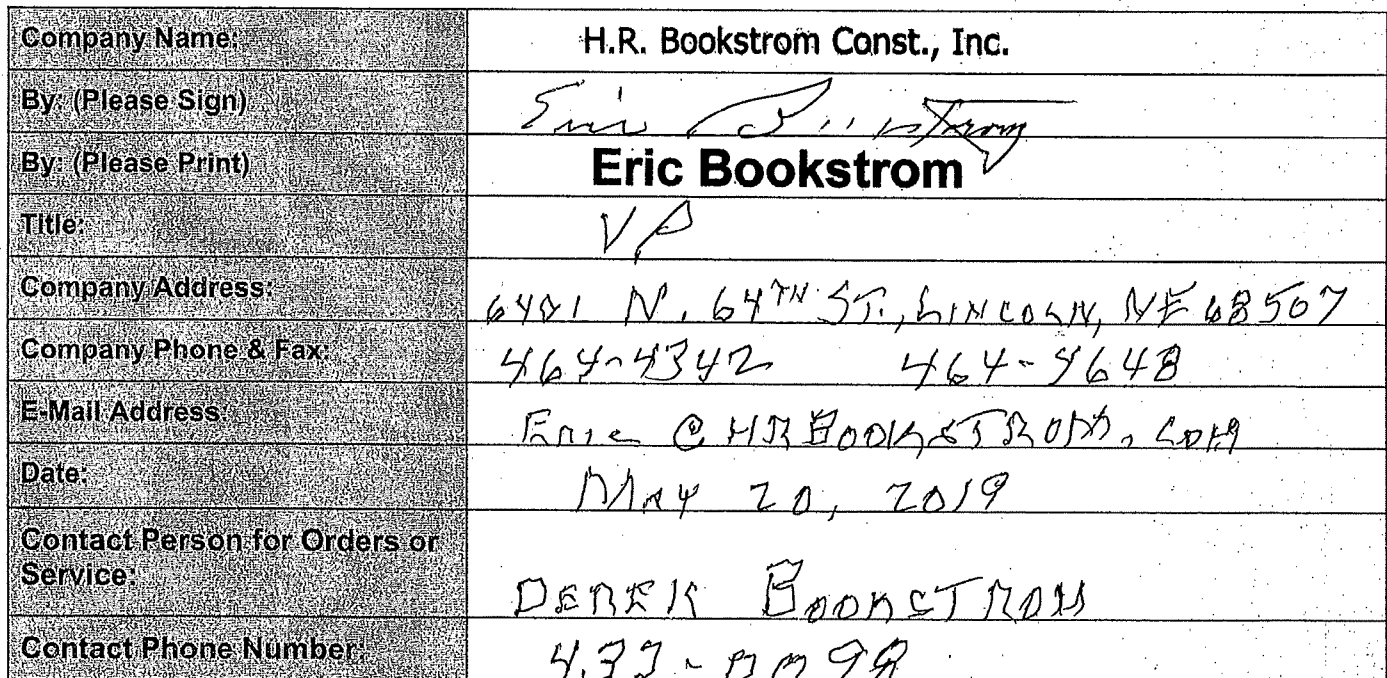 Company Name: H.R. Bookstrom Const., Inc.
By: (Please Sign) Eric Bookstrom
By: (Please Print) Eric Bookstrom
Title: VP
Company Address: 6401 N. 64TH ST., LINCOLN, NE 68507
Company Phone & Fax: 464-4342 464-4648
E-Mail Address: Eric @ HRBOOKSTROM.COM
Date: MAY 20, 2019
Contact Person for Orders or
Service: DEREK BOOKSTROM
Contact Phone Number: